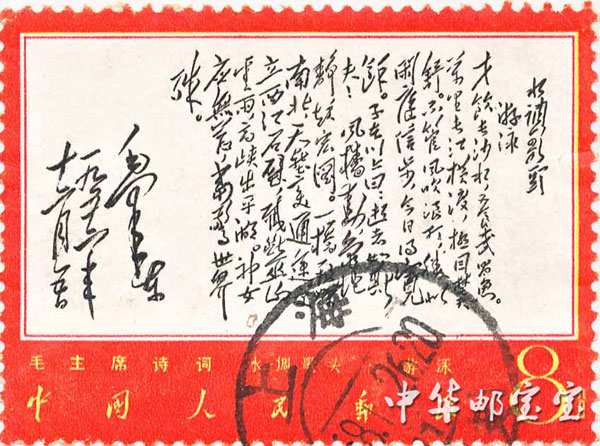 水调歌头
游泳
才饮长沙水，又食武昌鱼。
万里长江横渡，极目楚天
舒。不管风吹浪打，胜似
闲庭信步，今日得宽
馀。子在川上曰：逝者如斯
夫！风樯动，龟蛇
静，起宏图。一桥飞架
南北，天堑变通途。更立
西江石壁，截断巫山
云雨，高峡出平湖。神女
应无恙，当惊世界
殊。
毛泽东
一九五六年
十二月五日
毛主席诗词 水调歌头 游泳
中国人民邮 8
上海
26.20
中华邮宝宝